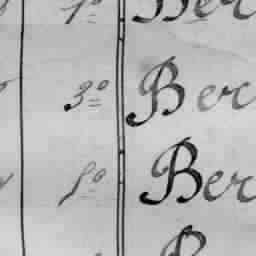 1º Ber
3º Ber
5º Ber